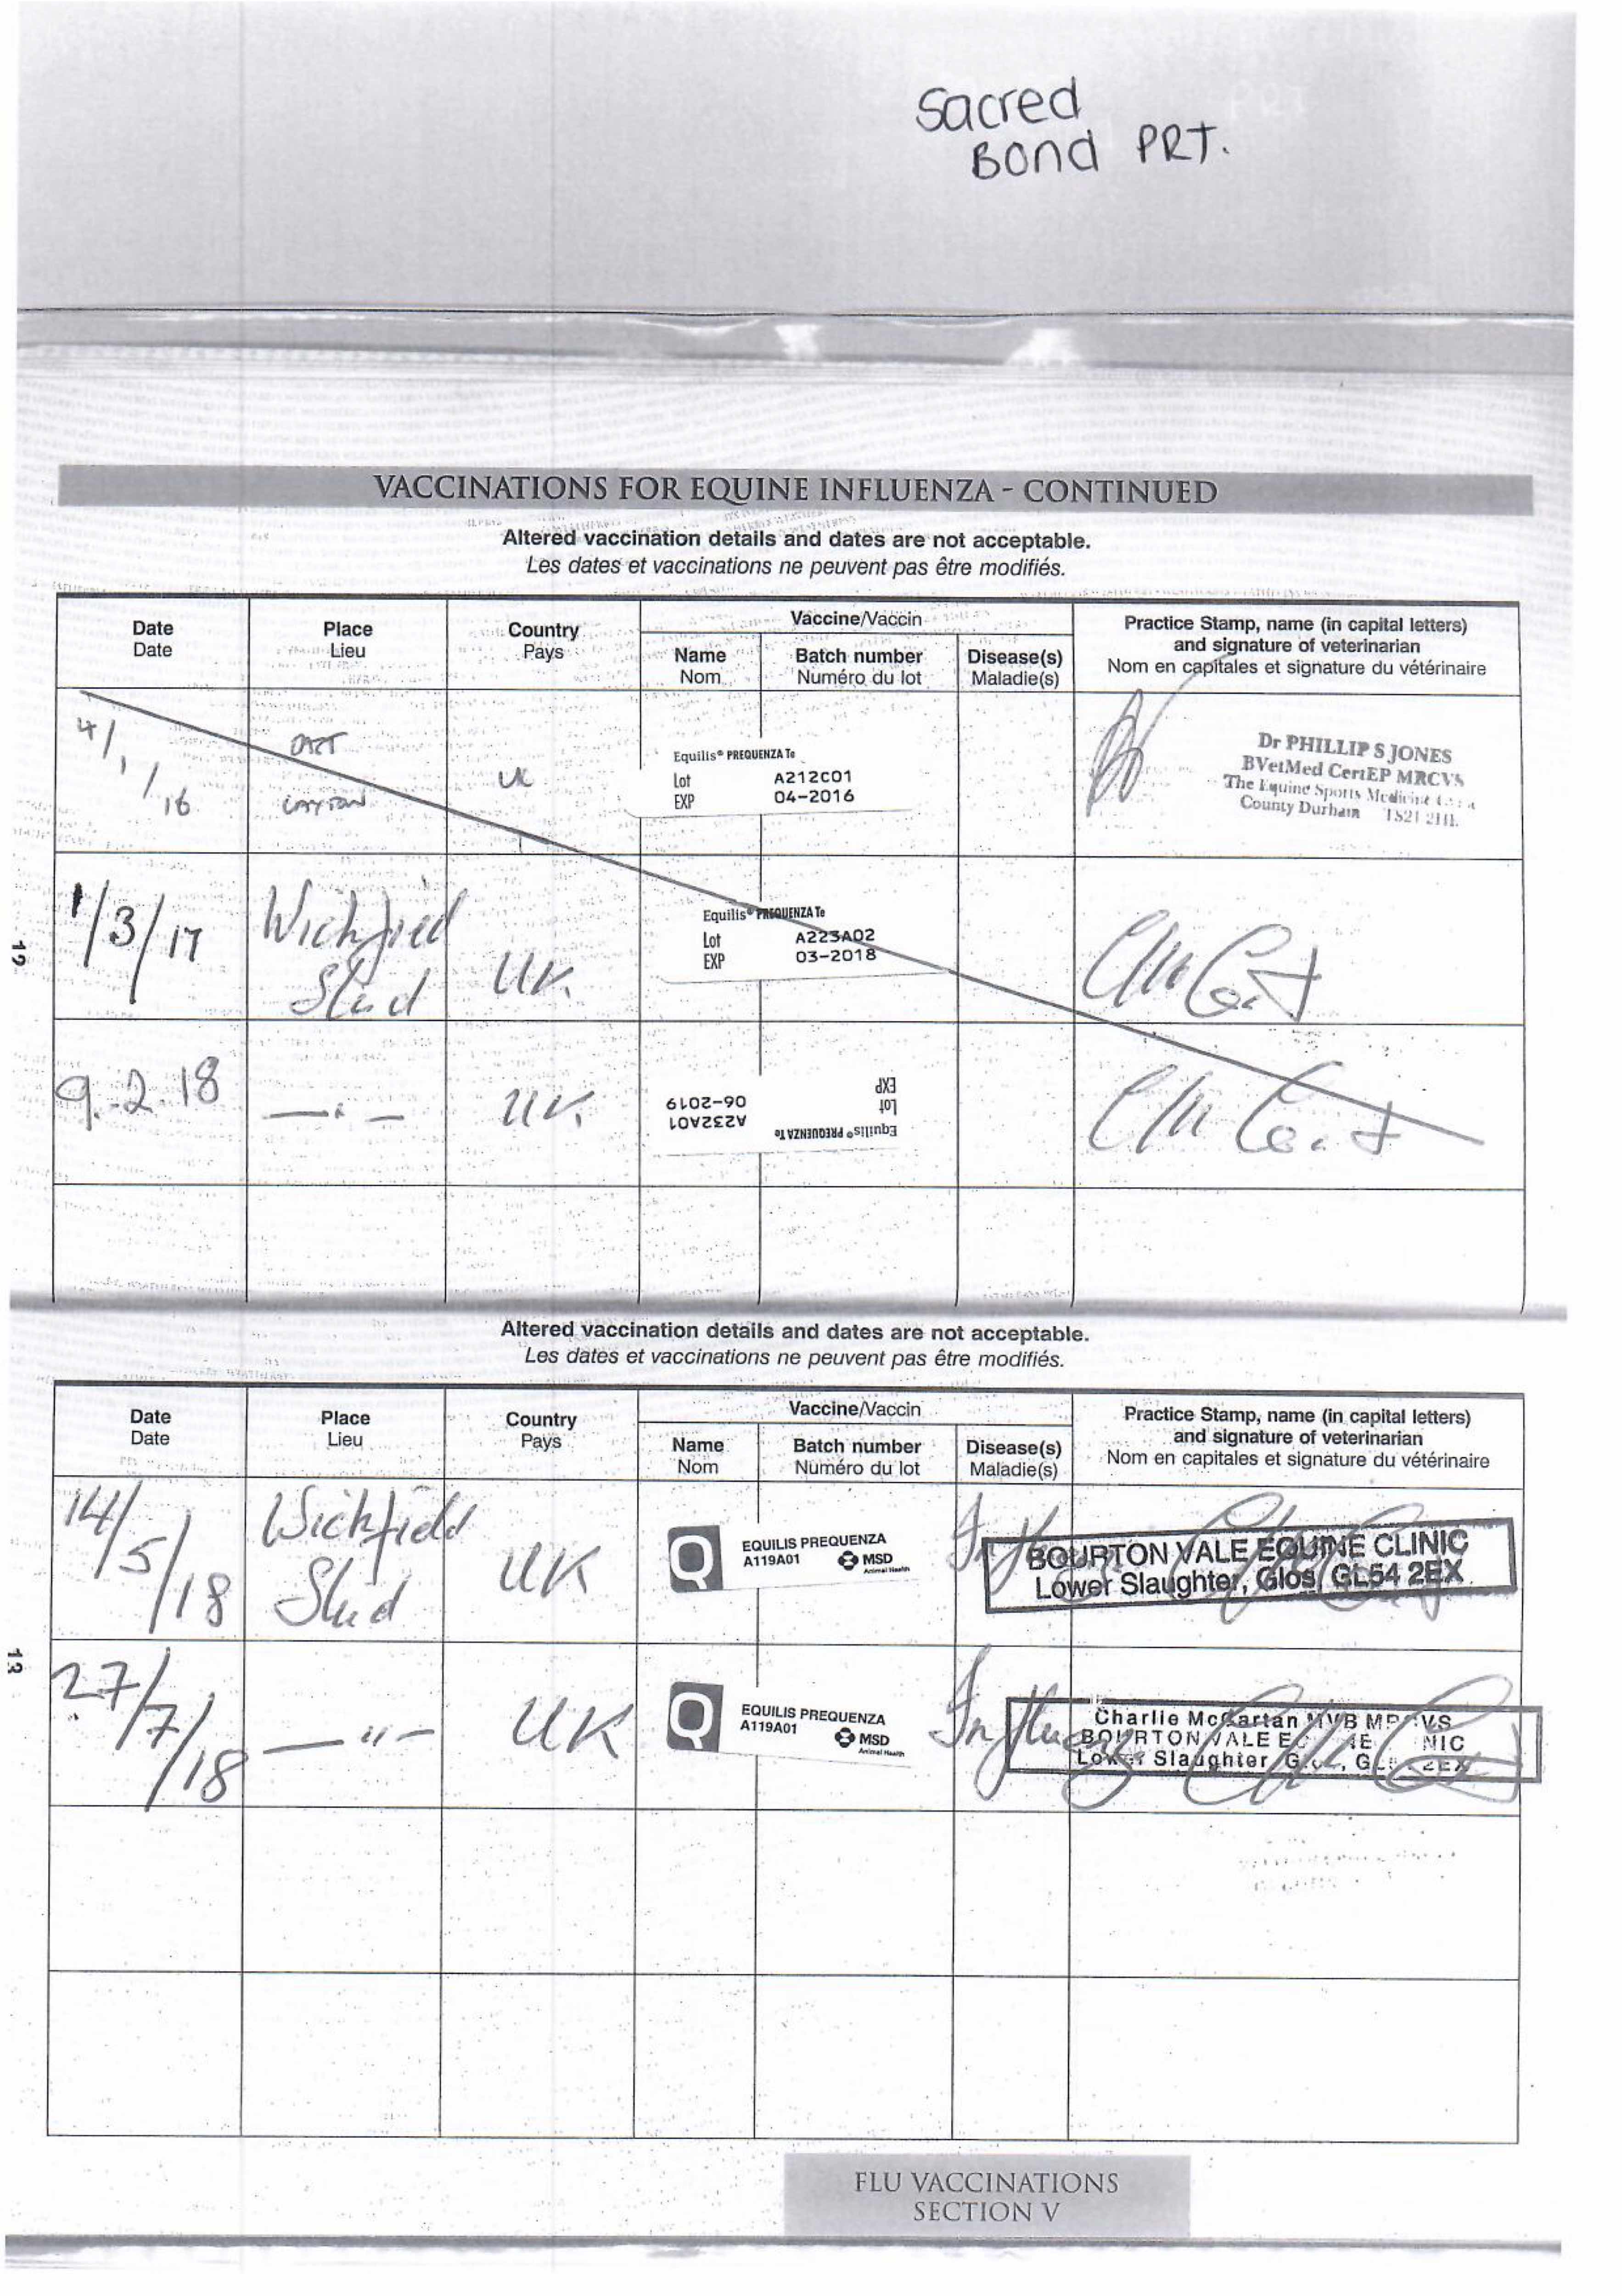 Sacred
Bond PRT.
VACCINATIONS FOR EQUINE INFLUENZA - CONTINUED
Altered vaccination details and dates are not acceptable.
Les dates et vaccinations ne peuvent pas être modifiés.
Date Place Country Vaccine/Vaccin Practice Stamp, name (in capital letters)
Date Lieu Pays Name Batch number Disease(s) and signature of veterinarian
Nom Numéro du lot Maladie(s) Nom en capitales et signature du vétérinaire
4/1/16 UK
Equilis® PREQUENZA Te
Lot A212C01
EXP 04-2016
Dr PHILLIP S JONES
BVetMed CertEP MRCVS
The Equine Sports Medicine
County Durham TS21
12
1/3/17 Wichfied
Stud UK.
Equilis® PREQUENZA Te
Lot A223A02
EXP 03-2018
9.2.18 —"— UK.
Equilis® PREQUENZA Te
Lot A232A01
EXP 06-2019
Altered vaccination details and dates are not acceptable.
Les dates et vaccinations ne peuvent pas être modifiés.
Date Place Country Vaccine/Vaccin Practice Stamp, name (in capital letters)
Date Lieu Pays Name Batch number Disease(s) and signature of veterinarian
Nom Numéro du lot Maladie(s) Nom en capitales et signature du vétérinaire
14/5/18 Wichfield
Stud UK
Q EQUILIS PREQUENZA
A119A01 MSD
Animal Health
BOURTON VALE EQUINE CLINIC
Lower Slaughter, Glos, GL54 2EX
13
27/7/18 —"— UK
Q EQUILIS PREQUENZA
A119A01 MSD
Animal Health
Influenza
Charlie McCartan MVB MRCVS
BOURTON VALE
Lower Slaughter
FLU VACCINATIONS
SECTION V